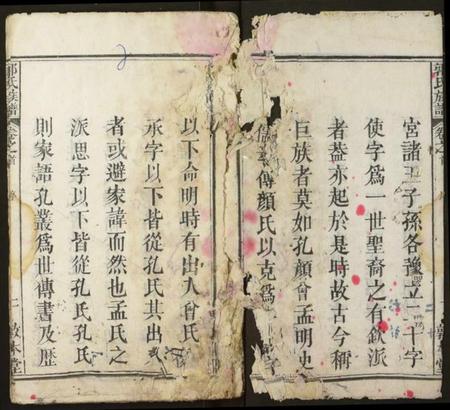 郭氏族譜
卷之首
宮諸王子孫各豫立二十字
使字爲一世聖裔之有欽派
者葢亦起於是時故古今稱
巨族者莫如孔顏曾孟明史
儒 傳顏氏以克爲 字
以下命明時有出入曾氏
承字以下皆從孔氏其出
者或避家諱而然也孟氏之
派思字以下皆從孔氏孔氏
則家語孔叢爲世傳書及歷
郭氏族譜
卷之首
序
二
敦本堂